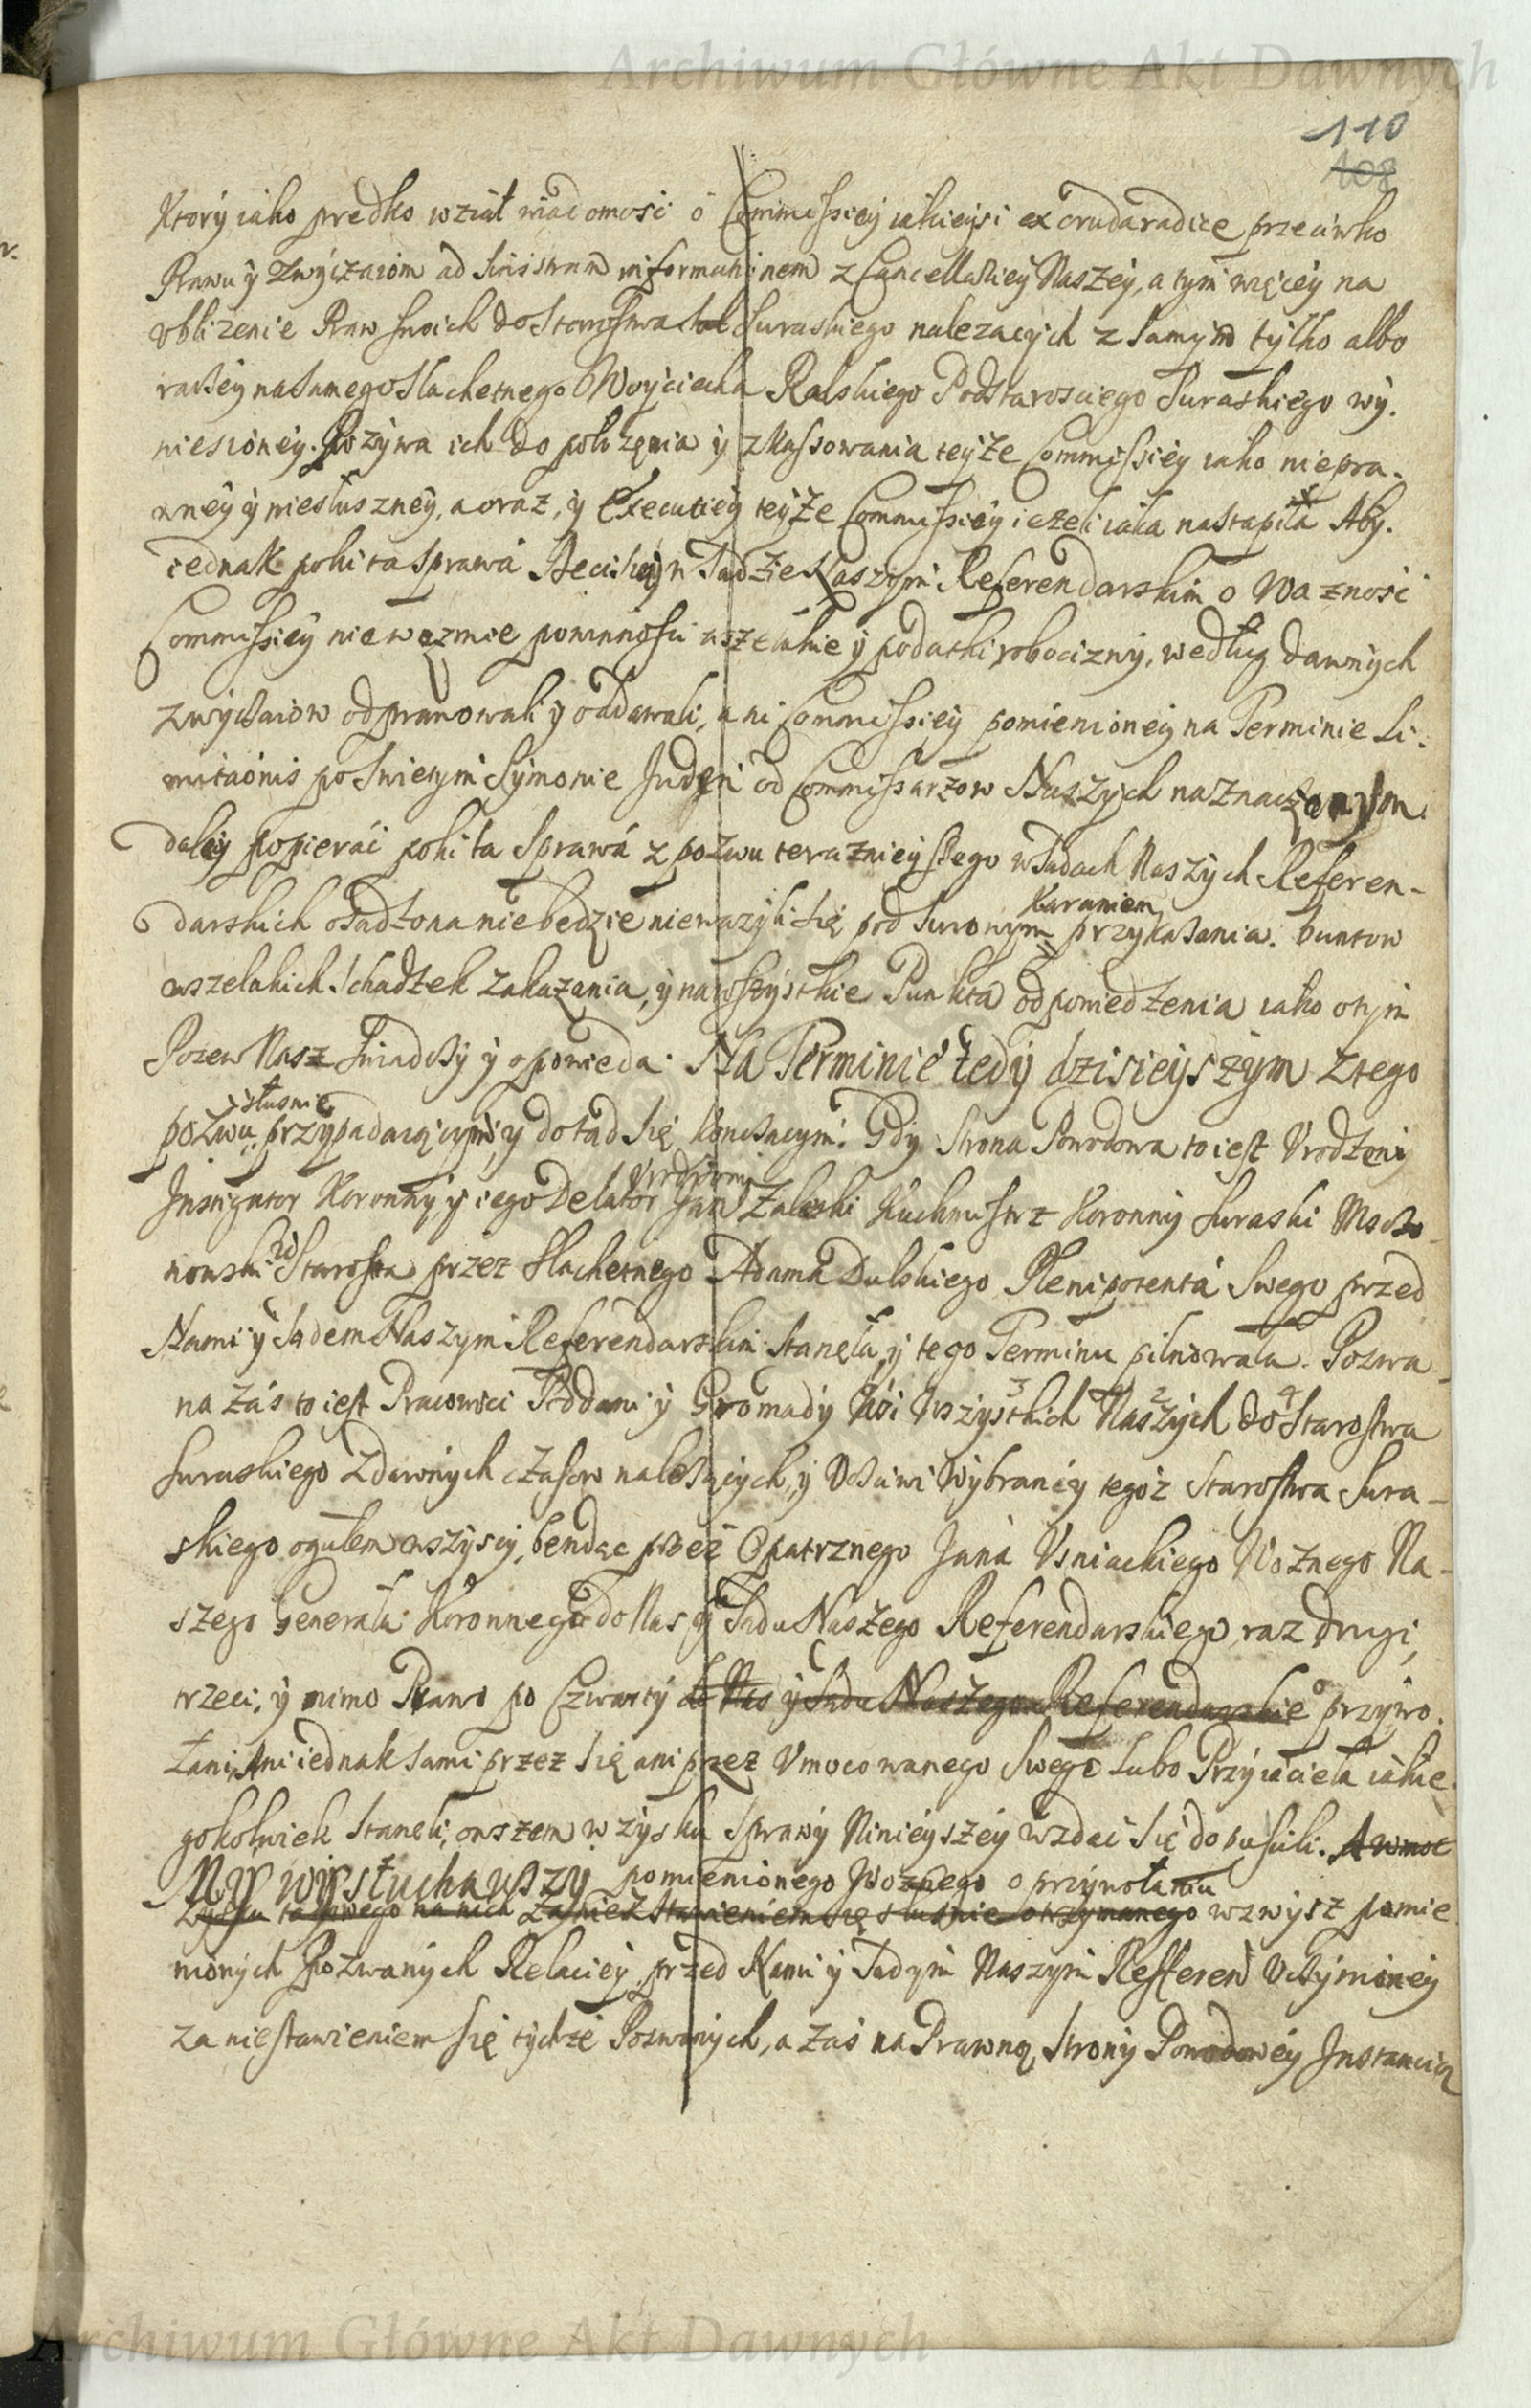 Archiwum Główne Akt Dawnych
110
108
Ktory iako prędko wziął wiadomość o Commissiey iakieysi ex cruda radice przeciwko
Prawu y zwyczaiom ad sinistram informationem z Cancellariey Naszey, a tym więcey na
ubliżenie Praw swoich do Starostwa Suraskiego należących z samym tylko albo
raczey na samego Slachetnego Woyciecha Ralskiego Podstarosciego Suraskiego wy.
niesioney. Pozywa ich do położenia y zkassowania teyże Commissiey iako niepra-
wney y niesłuszney, a oraz, y Executiey teyże Commissiey ieżeli iaka nastąpiła Aby.
iednak poki ta sprawa w Sądzie Naszym Referendarskim o Ważność
Commissiey nie weźmie powinności wszelakie y podatki robocizny, według dawnych
zwyczaiow odprawowali y oddawali, ani Commissiey pomienioney na Terminie Li-
mitaōnis po Swiętym Symonie Judzie od Commissarzow Naszych naznaczonym.
daley popierać poki ta Sprawa z pozwu teraznieyszego w Sądach Naszych Referen-
darskich osądzona nie będzie nieważyli się pod surowym przykazania. buntow
Karaniem
wszelakich schadzek zakazania, y na wszystkie Punkta odpowiedzenia iako o tym
Pozew Nasz świadczy y opowieda. Na Terminie tedy dzisieyszym z tego
słusznie
pozwu przypadaiącym y dotąd się konczącym. Gdy Strona Powodowa to iest Urodzony
Urodzony
Instigator Koronny y iego Delator Jan Zaleski Kuchmistrz Koronny Suraski
Starosta przez Slachetnego Adama Dulskiego Plenipotenta Swego przed
Nami y Sądem Naszym Referendarskim Stanęła, y tego Terminu pilnowała. Pozwa-
na zaś to iest Pracowici Poddani y Gromady Wsi Wszystkich 3 Naszych 2 do 4 Starostwa
Suraskiego z dawnych czasow należących, y Uczciwi Wybrańcy tegoż Starostwa Sura-
skiego ogułem wszyscy, bendąc przez Opatrznego Jana Usniackiego Woźnego Na-
szego Generała Koronnego do Nas y Sądu Naszego Referendarskiego, raz drugi,
trzeci, y mimo Prawo po Czwarty do Nas y Sądu Naszego Referendarskiego przywo.
łani, Ani iednak sami przez się ani przez Umocowanego Swego Lubo Przyiaciela iakie-
gokolwiek Stanęli, owszem w zysku Sprawy Ninieyszey wzdać się dopuscili. A wmoc
My wysłuchawszy pomienionego Woznego o przywołaniu
zysku takowego na nich za niestawieniem się słusznie otrzymanego wzwysz pomie
nionych Pozwanych Relaciey, przed Nami y Sądem Naszym Refferen Uczynioney
za niestawieniem się tychże Pozwanych, a zaś na Prawną Strony Powodowey Instancią
Archiwum Główne Akt Dawnych